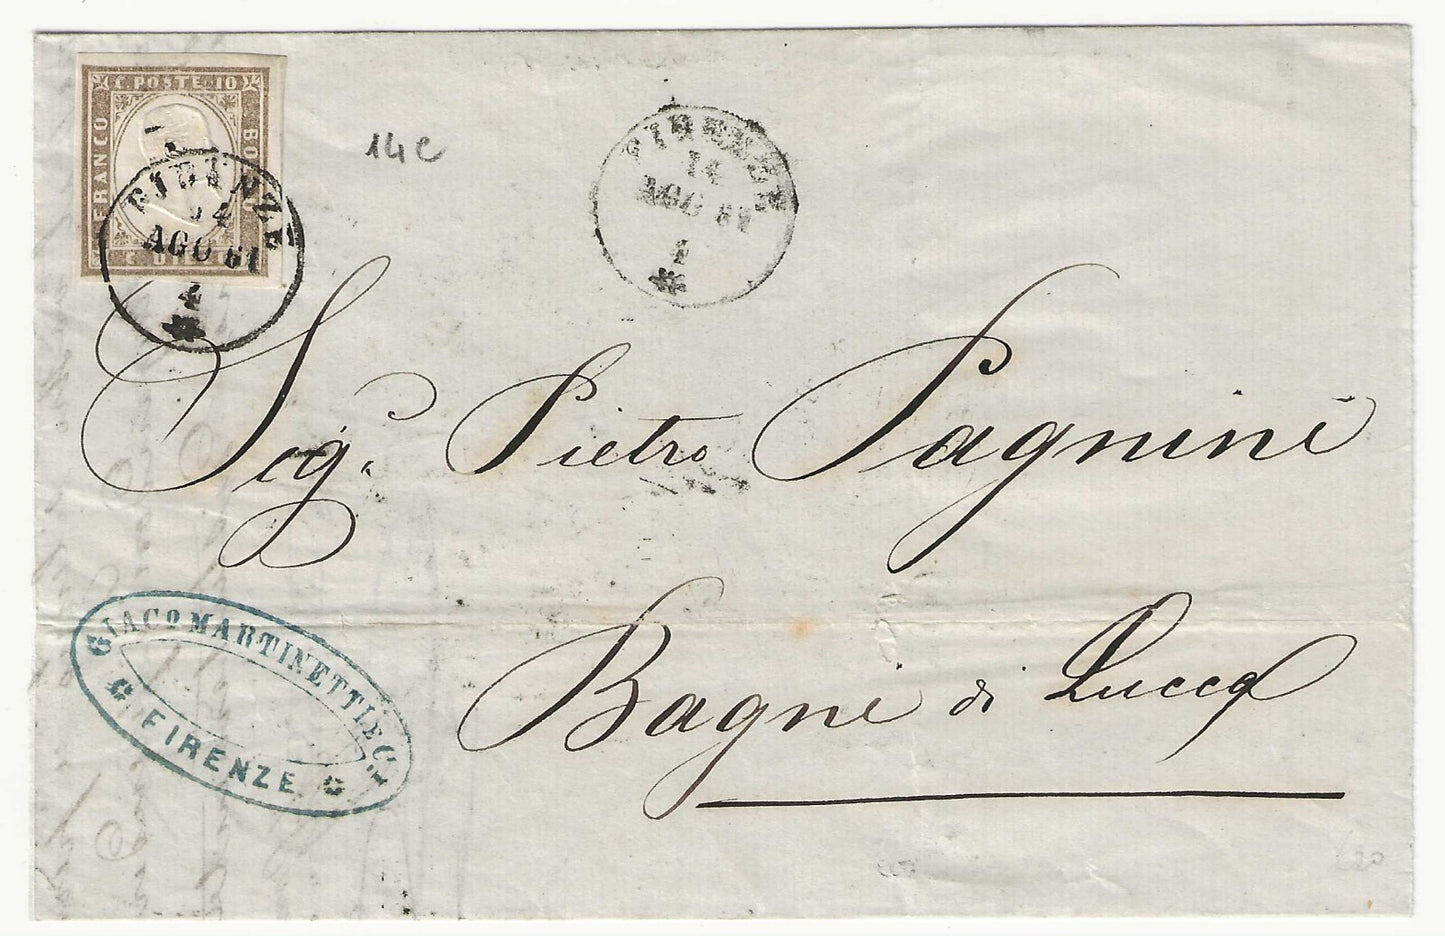 C. POSTE 10
FRANCO
BO
FIRENZE
14
AGO 61
4
14c
FIRENZE
14
AGO 61
4
Sig. Pietro Pagnini
Bagni di Lucca
GIACO MARTINETTI E C.I
FIRENZE